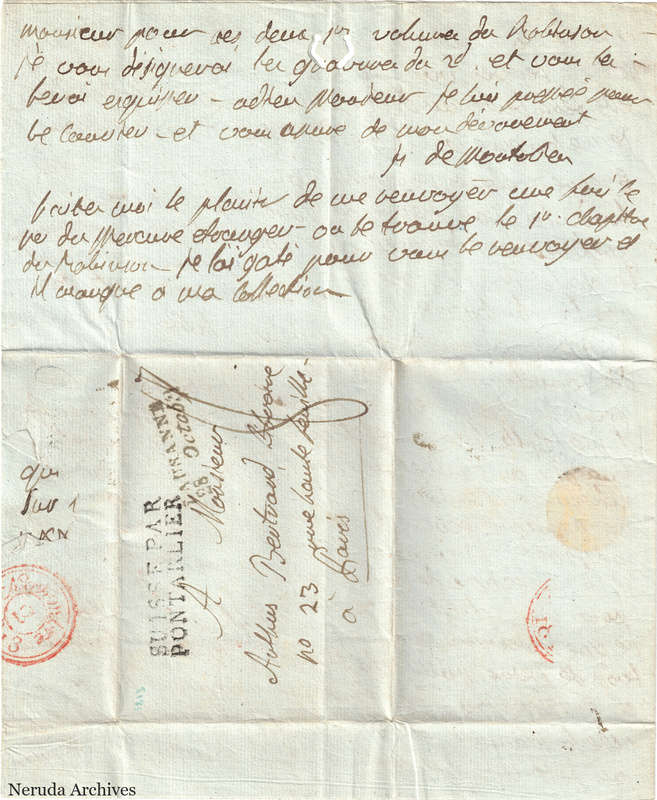 monsieur pour ces deux 1ers volumes du Robinson
je vous désignerai les gravures du 2d. et vous les
ferai esquisser – adieu Monsieur je suis pressée pour
le Courier – et vous assure de mon dévouement
de Montolieu
faites moi le plaisir de me renvoyer une fois le
no du Mercure étranger – ou se trouve le 1er chapitre
du Robinson je l'ai gaté pour vous le renvoyer et
il manque a ma Collection
LAUSANNE
28 Octobre
SUISSE PAR
PONTARLIER
A Monsieur
Arthus Bertrand Libraire
no 23 rue haute feuille –
à Paris
que
sur
1813
Neruda Archives